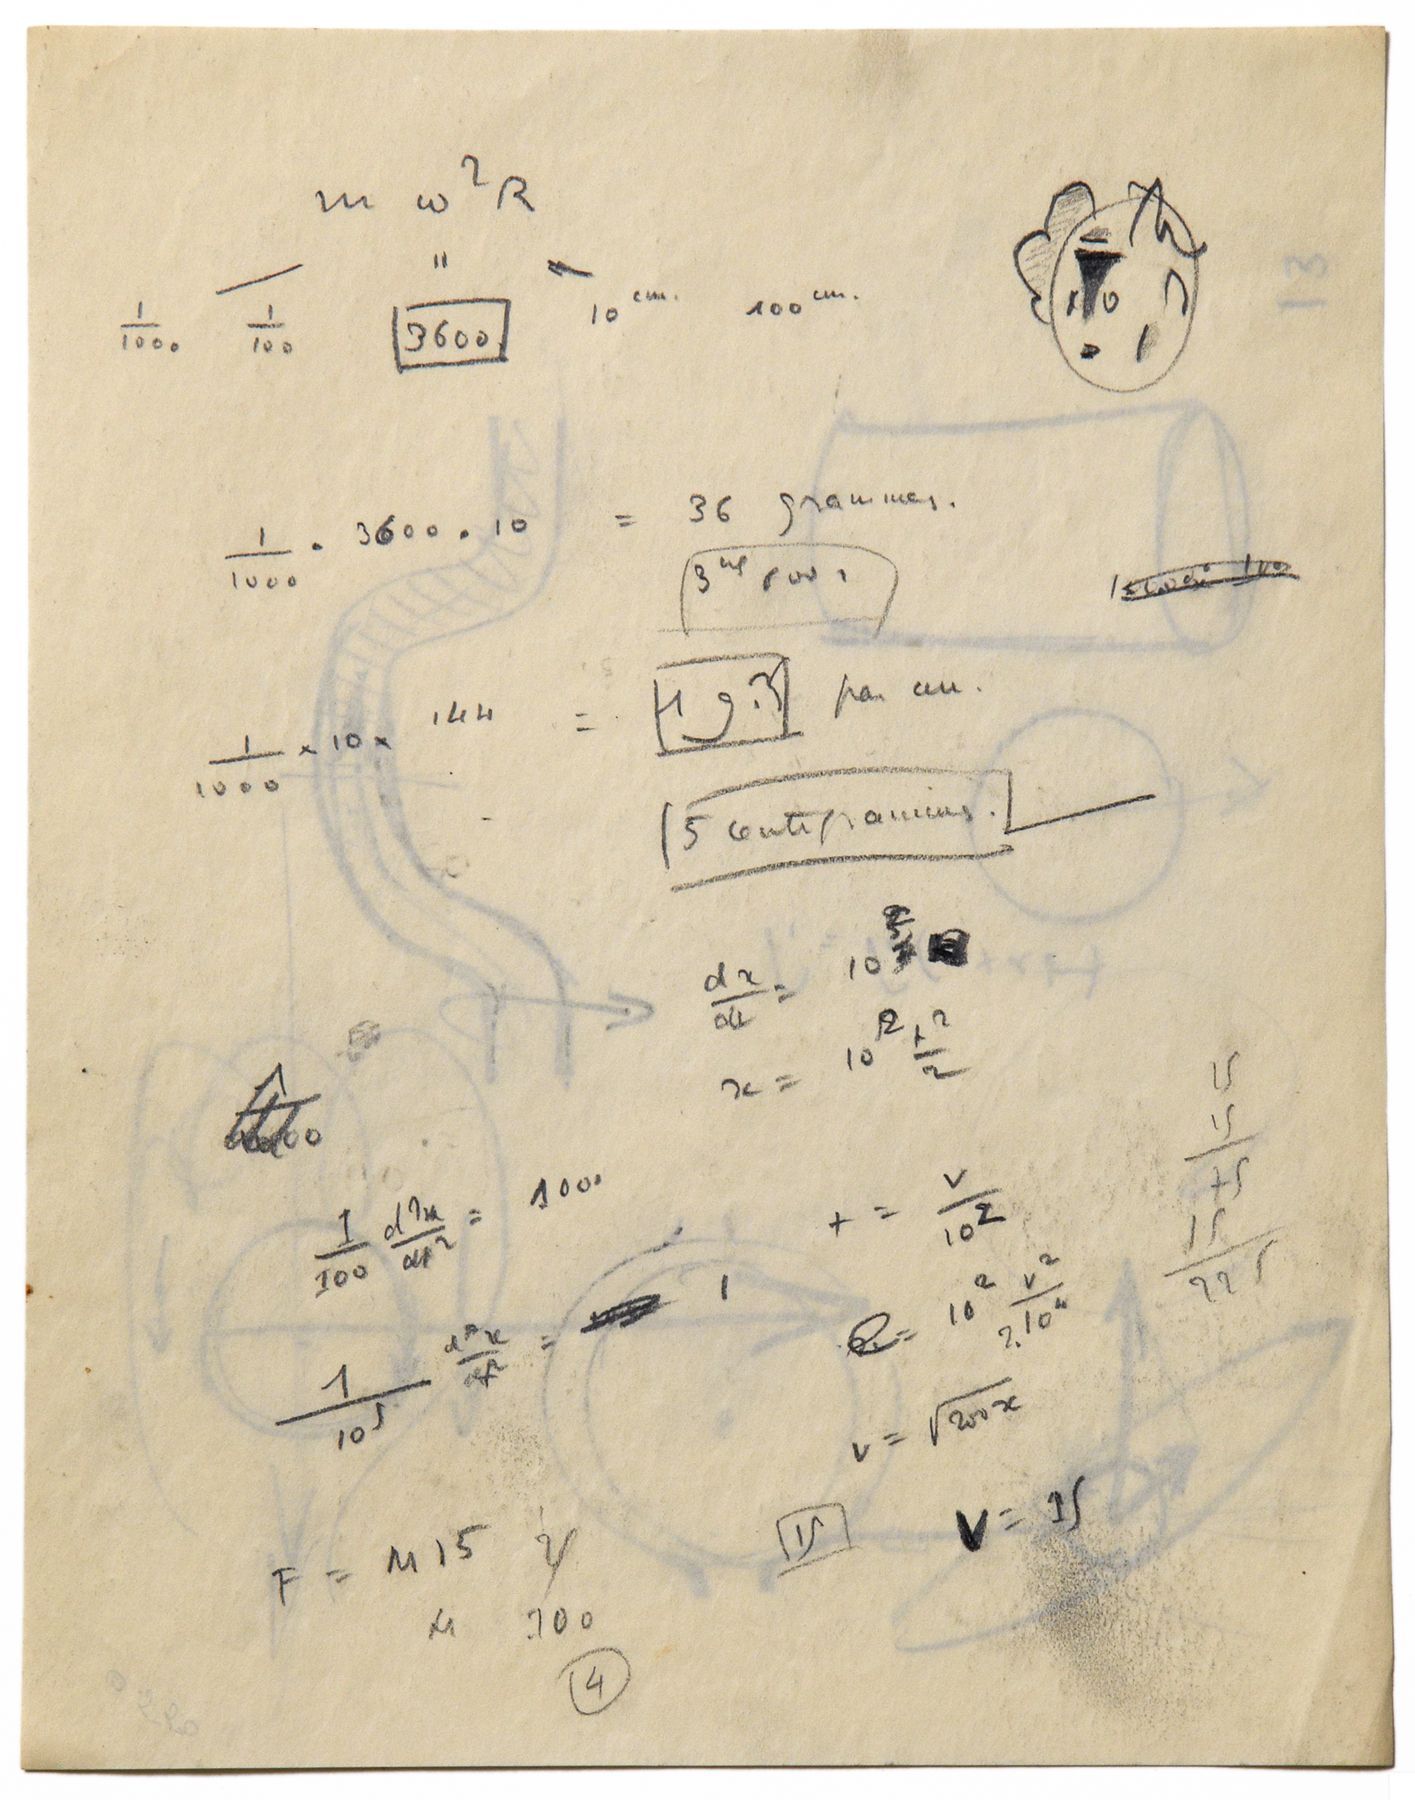 m ω²R
"
1/1000 1/100 3600 10 cm. 100 cm.
1/1000 . 3600 . 10 = 36 grammes.
1/1000 × 10 × 144 = par an.
5 centigrammes.
dx/dt = 10
x = 10² t²/2
1/100 d²x/dt² = 1000
t = v/10²
1/10⁵ d²x/dt² = 1
= 10² v²/2.10⁴
v = √200x
15
15
75
15
225
F = M 15
15
V = 15
100
4
13